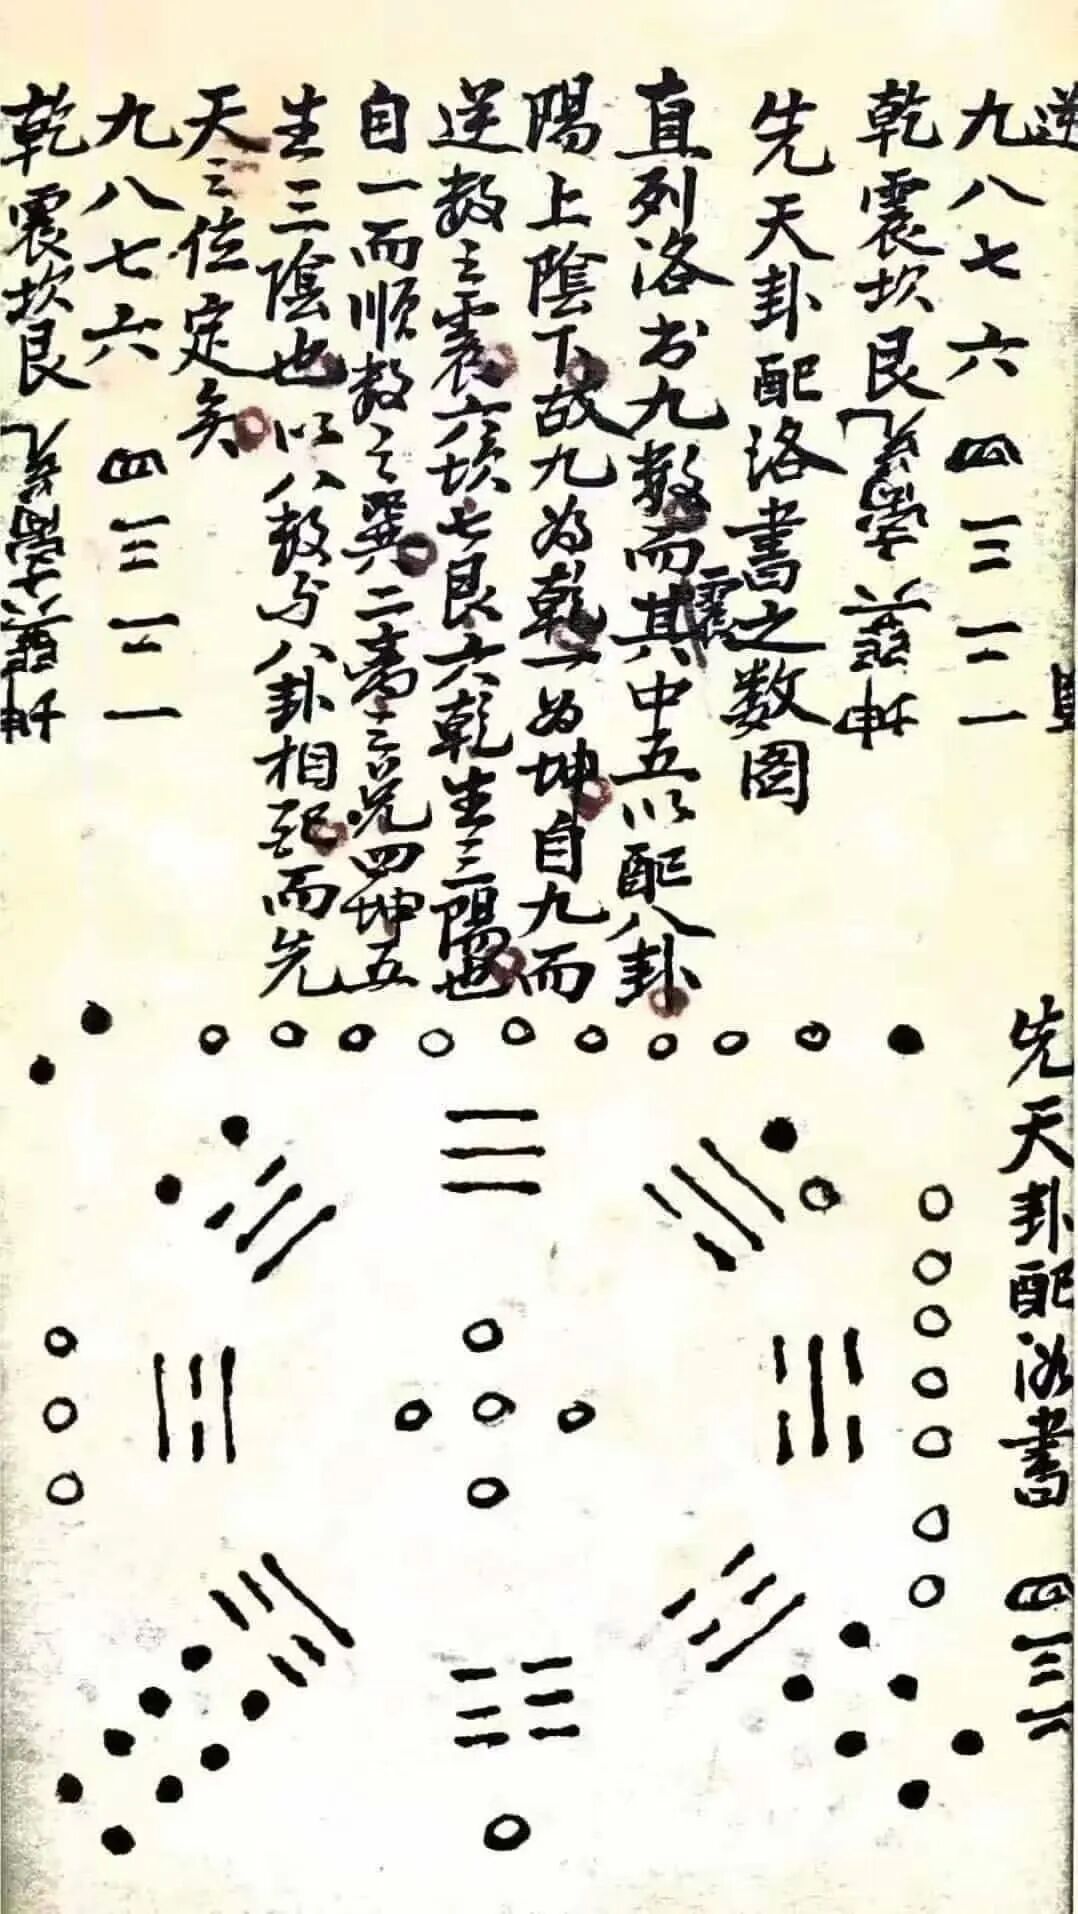 逆
九八七六 四三二一
乾震坎艮
先天卦配洛書之数图
直列洛书九数而其中五以配八卦
陽上陰下故九為乾一为坤自九而
逆数之震六坎七艮六乾生三陽也
自一而順数之巽二离三兑四坤五
生三陰也以八数与八卦相配而先
天之位定矣
九八七六 四三二一
乾震坎艮
先天卦配洛書